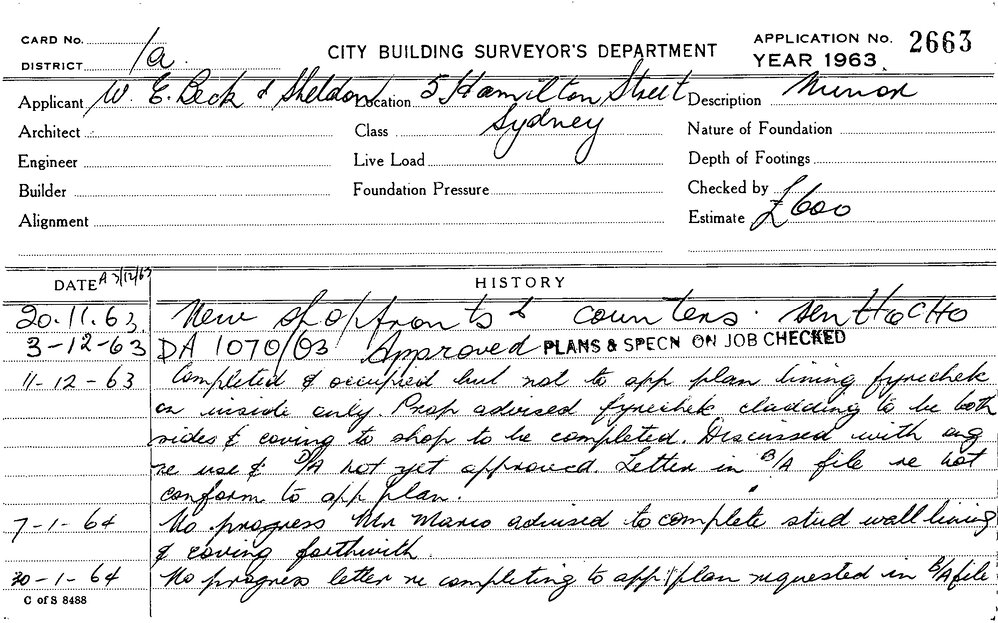 CARD No.
DISTRICT 1a.
CITY BUILDING SURVEYOR'S DEPARTMENT
APPLICATION No. 2663
YEAR 1963.
Applicant W. E. Beck & Sheldon Location 5 Hamilton Street Description Minor
Sydney
Architect Class Nature of Foundation
Engineer Live Load Depth of Footings
Builder Foundation Pressure Checked by
Alignment Estimate £600
DATE A 3/12/63 HISTORY
20.11.63. New shopfronts & counters.
3-12-63 DA 1070/63 Approved PLANS & SPECN ON JOB CHECKED
11-12-63 Completed & occupied but not to app plan lining fyrechek
on inside only. Prop advised fyrechek cladding to be both
sides & coving to shop to be completed. Discussed with
re use & D/A not yet approved. Letter in B/A file re not
conform to app plan.
7-1-64 No progress Mr Marco advised to complete stud wall lining
& coving forthwith.
30-1-64 No progress letter re completing to app plan requested in B/A file
C of S 8488